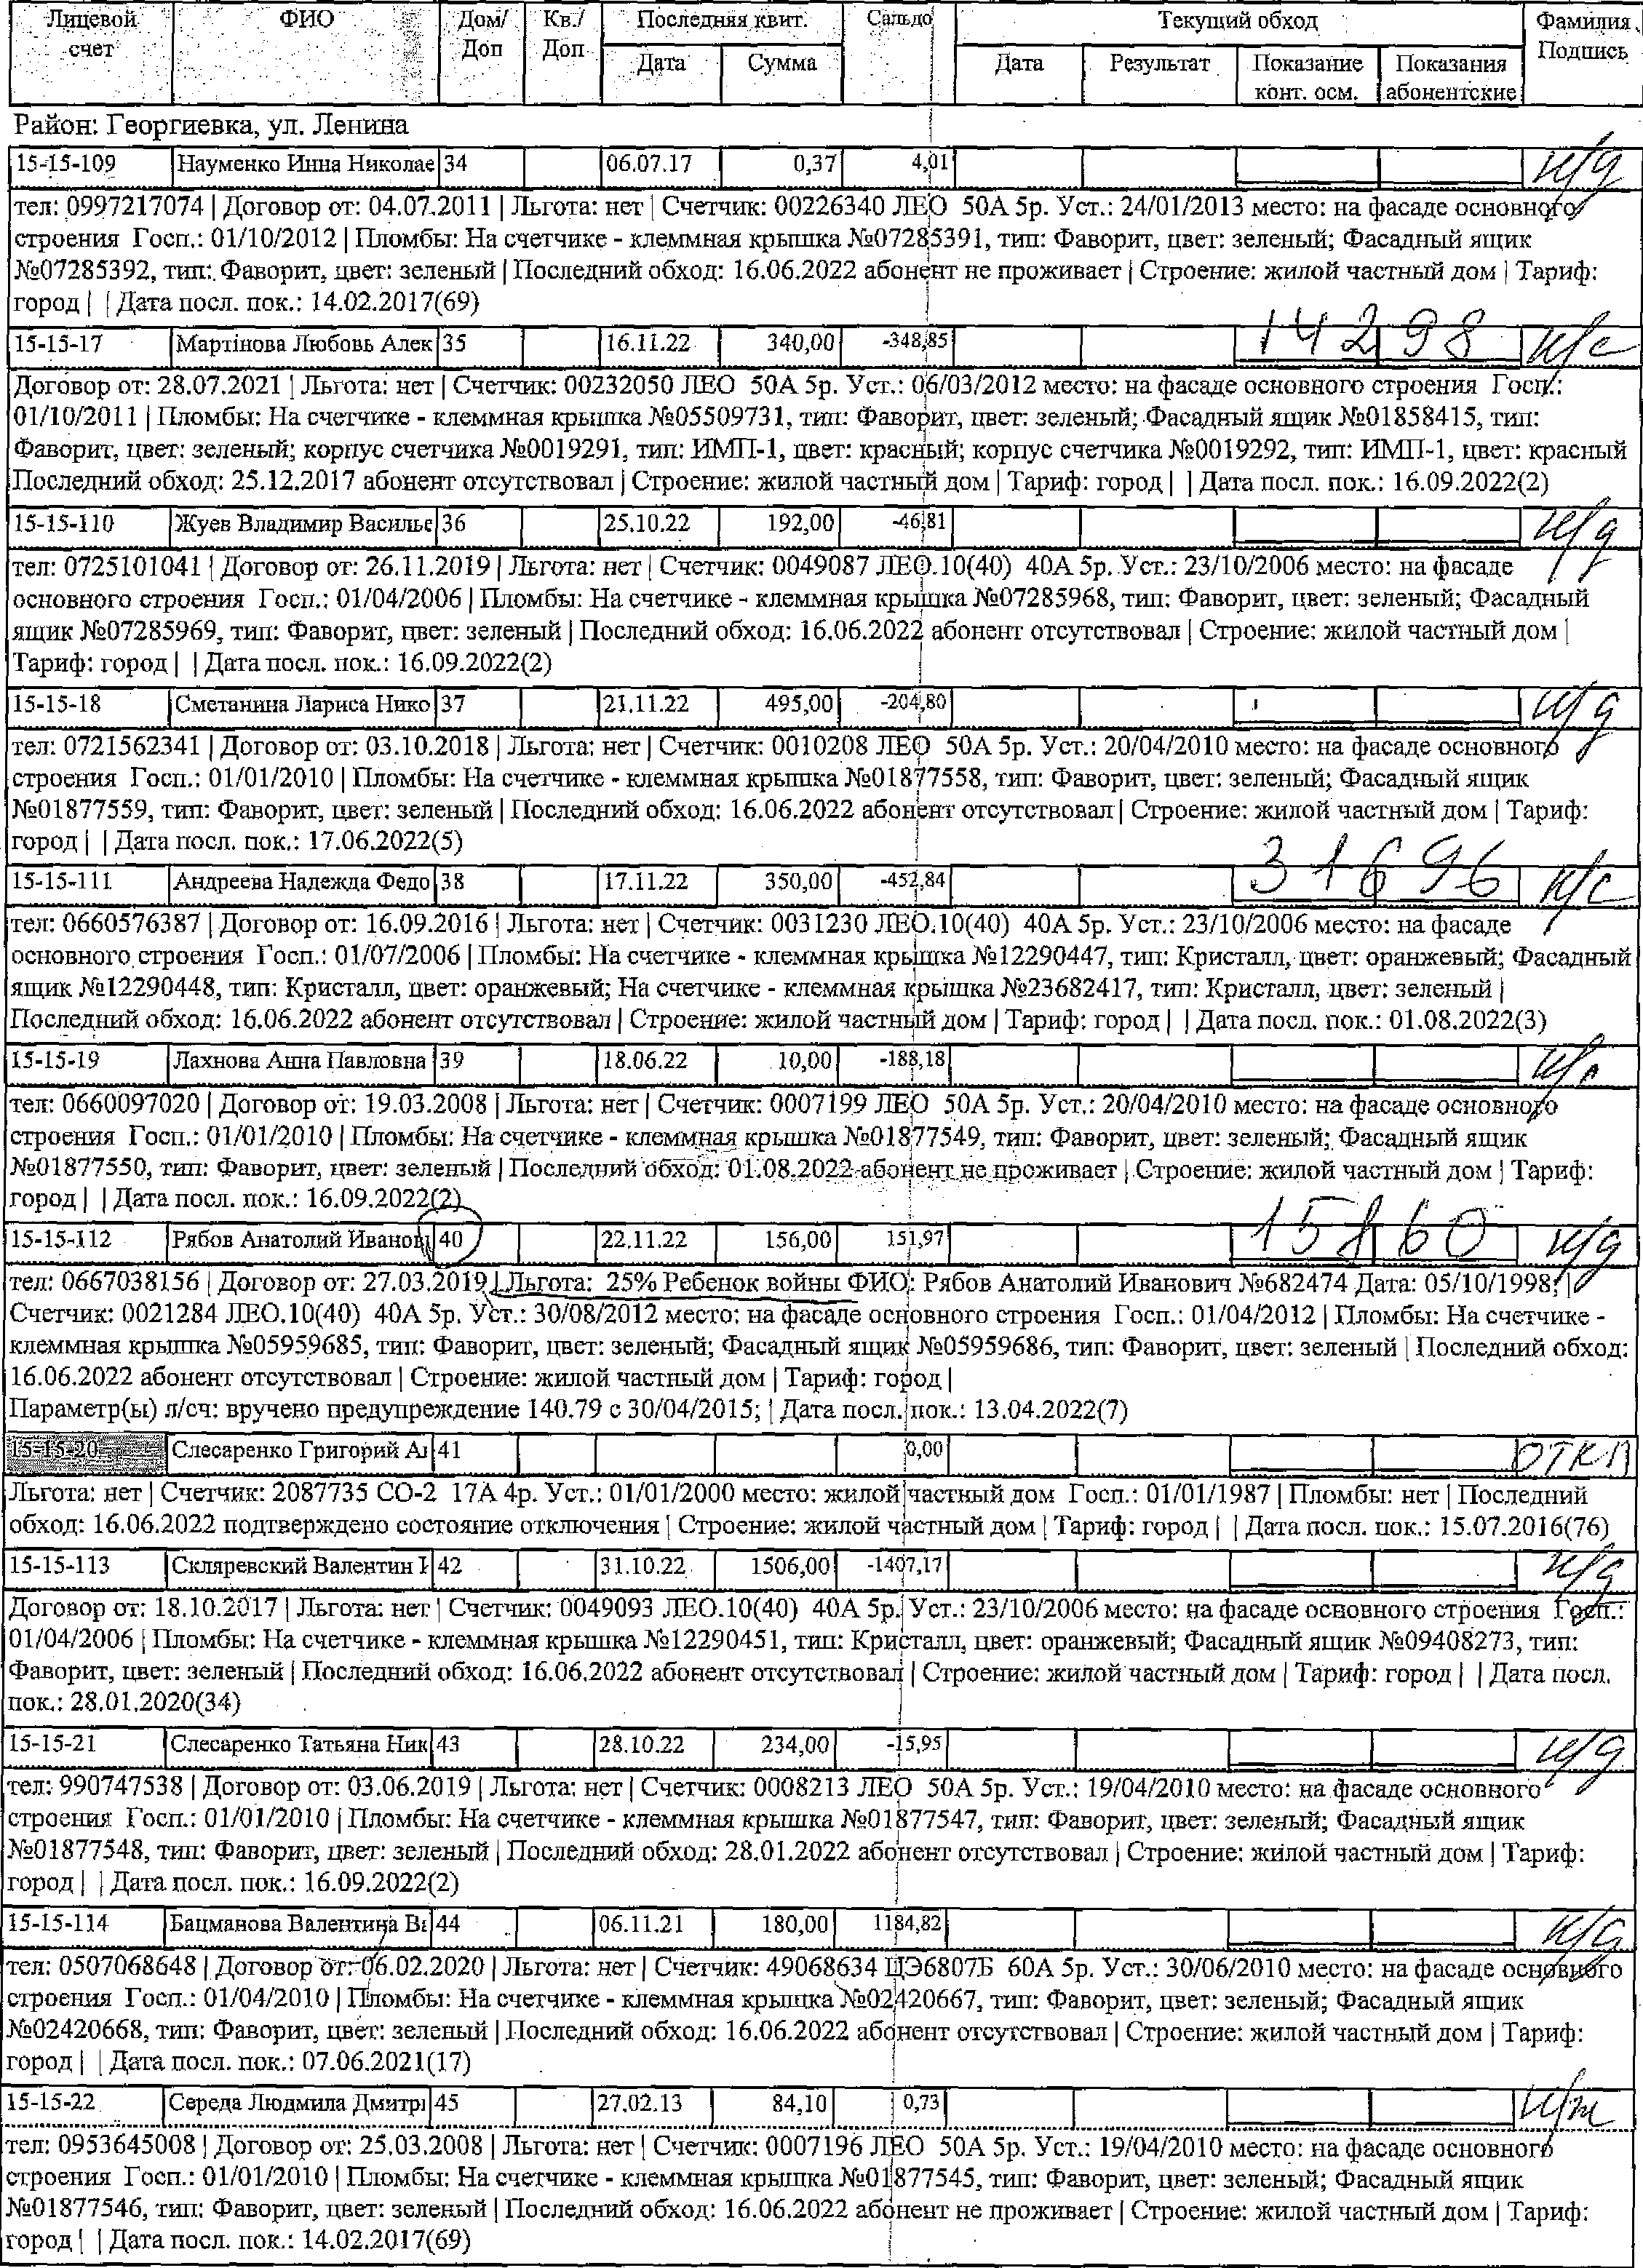 Лицевой счет ФИО Дом/Доп Кв./Доп Последняя квит. Сальдо Текущий обход Фамилия Подпись
Дата Сумма Дата Результат Показание конт. осм. Показания абонентские
Район: Георгиевка, ул. Ленина
15-15-109 Науменко Инна Николае 34 06.07.17 0,37 4,01 н/д
тел: 0997217074 | Договор от: 04.07.2011 | Льгота: нет | Счетчик: 00226340 ЛЕО 50А 5р. Уст.: 24/01/2013 место: на фасаде основного
строения Госп.: 01/10/2012 | Пломбы: На счетчике - клеммная крышка №07285391, тип: Фаворит, цвет: зеленый; Фасадный ящик
№07285392, тип: Фаворит, цвет: зеленый | Последний обход: 16.06.2022 абонент не проживает | Строение: жилой частный дом | Тариф:
город | | Дата посл. пок.: 14.02.2017(69)
15-15-17 Мартінова Любовь Алек 35 16.11.22 340,00 -348,85 14298 н/с
Договор от: 28.07.2021 | Льгота: нет | Счетчик: 00232050 ЛЕО 50А 5р. Уст.: 06/03/2012 место: на фасаде основного строения Госп.:
01/10/2011 | Пломбы: На счетчике - клеммная крышка №05509731, тип: Фаворит, цвет: зеленый; Фасадный ящик №01858415, тип:
Фаворит, цвет: зеленый; корпус счетчика №0019291, тип: ИМП-1, цвет: красный; корпус счетчика №0019292, тип: ИМП-1, цвет: красный
Последний обход: 25.12.2017 абонент отсутствовал | Строение: жилой частный дом | Тариф: город | | Дата посл. пок.: 16.09.2022(2)
15-15-110 Жуев Владимир Василье 36 25.10.22 192,00 -46,81 н/д
тел: 0725101041 | Договор от: 26.11.2019 | Льгота: нет | Счетчик: 0049087 ЛЕО.10(40) 40А 5р. Уст.: 23/10/2006 место: на фасаде
основного строения Госп.: 01/04/2006 | Пломбы: На счетчике - клеммная крышка №07285968, тип: Фаворит, цвет: зеленый; Фасадный
ящик №07285969, тип: Фаворит, цвет: зеленый | Последний обход: 16.06.2022 абонент отсутствовал | Строение: жилой частный дом |
Тариф: город | | Дата посл. пок.: 16.09.2022(2)
15-15-18 Сметанина Лариса Нико 37 21.11.22 495,00 -204,80 н/д
тел: 0721562341 | Договор от: 03.10.2018 | Льгота: нет | Счетчик: 0010208 ЛЕО 50А 5р. Уст.: 20/04/2010 место: на фасаде основного
строения Госп.: 01/01/2010 | Пломбы: На счетчике - клеммная крышка №01877558, тип: Фаворит, цвет: зеленый; Фасадный ящик
№01877559, тип: Фаворит, цвет: зеленый | Последний обход: 16.06.2022 абонент отсутствовал | Строение: жилой частный дом | Тариф:
город | | Дата посл. пок.: 17.06.2022(5)
15-15-111 Андреева Надежда Федо 38 17.11.22 350,00 -452,84 31696 н/с
тел: 0660576387 | Договор от: 16.09.2016 | Льгота: нет | Счетчик: 0031230 ЛЕО.10(40) 40А 5р. Уст.: 23/10/2006 место: на фасаде
основного строения Госп.: 01/07/2006 | Пломбы: На счетчике - клеммная крышка №12290447, тип: Кристалл, цвет: оранжевый; Фасадный
ящик №12290448, тип: Кристалл, цвет: оранжевый; На счетчике - клеммная крышка №23682417, тип: Кристалл, цвет: зеленый |
Последний обход: 16.06.2022 абонент отсутствовал | Строение: жилой частный дом | Тариф: город | | Дата посл. пок.: 01.08.2022(3)
15-15-19 Лахнова Анна Павловна 39 18.06.22 10,00 -188,18
тел: 0660097020 | Договор от: 19.03.2008 | Льгота: нет | Счетчик: 0007199 ЛЕО 50А 5р. Уст.: 20/04/2010 место: на фасаде основного
строения Госп.: 01/01/2010 | Пломбы: На счетчике - клеммная крышка №01877549, тип: Фаворит, цвет: зеленый; Фасадный ящик
№01877550, тип: Фаворит, цвет: зеленый | Последний обход: 01.08.2022 абонент не проживает | Строение: жилой частный дом | Тариф:
город | | Дата посл. пок.: 16.09.2022(2)
15-15-112 Рябов Анатолий Иванови 40 22.11.22 156,00 151,97 15860 н/д
тел: 0667038156 | Договор от: 27.03.2019 | Льгота: 25% Ребенок войны ФИО: Рябов Анатолий Иванович №682474 Дата: 05/10/1998; |
Счетчик: 0021284 ЛЕО.10(40) 40А 5р. Уст.: 30/08/2012 место: на фасаде основного строения Госп.: 01/04/2012 | Пломбы: На счетчике -
клеммная крышка №05959685, тип: Фаворит, цвет: зеленый; Фасадный ящик №05959686, тип: Фаворит, цвет: зеленый | Последний обход:
16.06.2022 абонент отсутствовал | Строение: жилой частный дом | Тариф: город |
Параметр(ы) л/сч: вручено предупреждение 140.79 с 30/04/2015; | Дата посл. пок.: 13.04.2022(7)
15-15-20 Слесаренко Григорий Ал 41 0,00 ОТКЛ
Льгота: нет | Счетчик: 2087735 СО-2 17А 4р. Уст.: 01/01/2000 место: жилой частный дом Госп.: 01/01/1987 | Пломбы: нет | Последний
обход: 16.06.2022 подтверждено состояние отключения | Строение: жилой частный дом | Тариф: город | | Дата посл. пок.: 15.07.2016(76)
15-15-113 Скляревский Валентин 42 31.10.22 1506,00 -1407,17 н/д
Договор от: 18.10.2017 | Льгота: нет | Счетчик: 0049093 ЛЕО.10(40) 40А 5р. Уст.: 23/10/2006 место: на фасаде основного строения Госп.:
01/04/2006 | Пломбы: На счетчике - клеммная крышка №12290451, тип: Кристалл, цвет: оранжевый; Фасадный ящик №09408273, тип:
Фаворит, цвет: зеленый | Последний обход: 16.06.2022 абонент отсутствовал | Строение: жилой частный дом | Тариф: город | | Дата посл.
пок.: 28.01.2020(34)
15-15-21 Слесаренко Татьяна Ник 43 28.10.22 234,00 -15,95 н/д
тел: 990747538 | Договор от: 03.06.2019 | Льгота: нет | Счетчик: 0008213 ЛЕО 50А 5р. Уст.: 19/04/2010 место: на фасаде основного
строения Госп.: 01/01/2010 | Пломбы: На счетчике - клеммная крышка №01877547, тип: Фаворит, цвет: зеленый; Фасадный ящик
№01877548, тип: Фаворит, цвет: зеленый | Последний обход: 28.01.2022 абонент отсутствовал | Строение: жилой частный дом | Тариф:
город | | Дата посл. пок.: 16.09.2022(2)
15-15-114 Бацманова Валентина Ва 44 06.11.21 180,00 1184,82 н/д
тел: 0507068648 | Договор от: 06.02.2020 | Льгота: нет | Счетчик: 49068634 ЦЭ6807Б 60А 5р. Уст.: 30/06/2010 место: на фасаде основного
строения Госп.: 01/04/2010 | Пломбы: На счетчике - клеммная крышка №02420667, тип: Фаворит, цвет: зеленый; Фасадный ящик
№02420668, тип: Фаворит, цвет: зеленый | Последний обход: 16.06.2022 абонент отсутствовал | Строение: жилой частный дом | Тариф:
город | | Дата посл. пок.: 07.06.2021(17)
15-15-22 Середа Людмила Дмитри 45 27.02.13 84,10 0,73 н/ж
тел: 0953645008 | Договор от: 25.03.2008 | Льгота: нет | Счетчик: 0007196 ЛЕО 50А 5р. Уст.: 19/04/2010 место: на фасаде основного
строения Госп.: 01/01/2010 | Пломбы: На счетчике - клеммная крышка №01877545, тип: Фаворит, цвет: зеленый; Фасадный ящик
№01877546, тип: Фаворит, цвет: зеленый | Последний обход: 16.06.2022 абонент не проживает | Строение: жилой частный дом | Тариф:
город | | Дата посл. пок.: 14.02.2017(69)